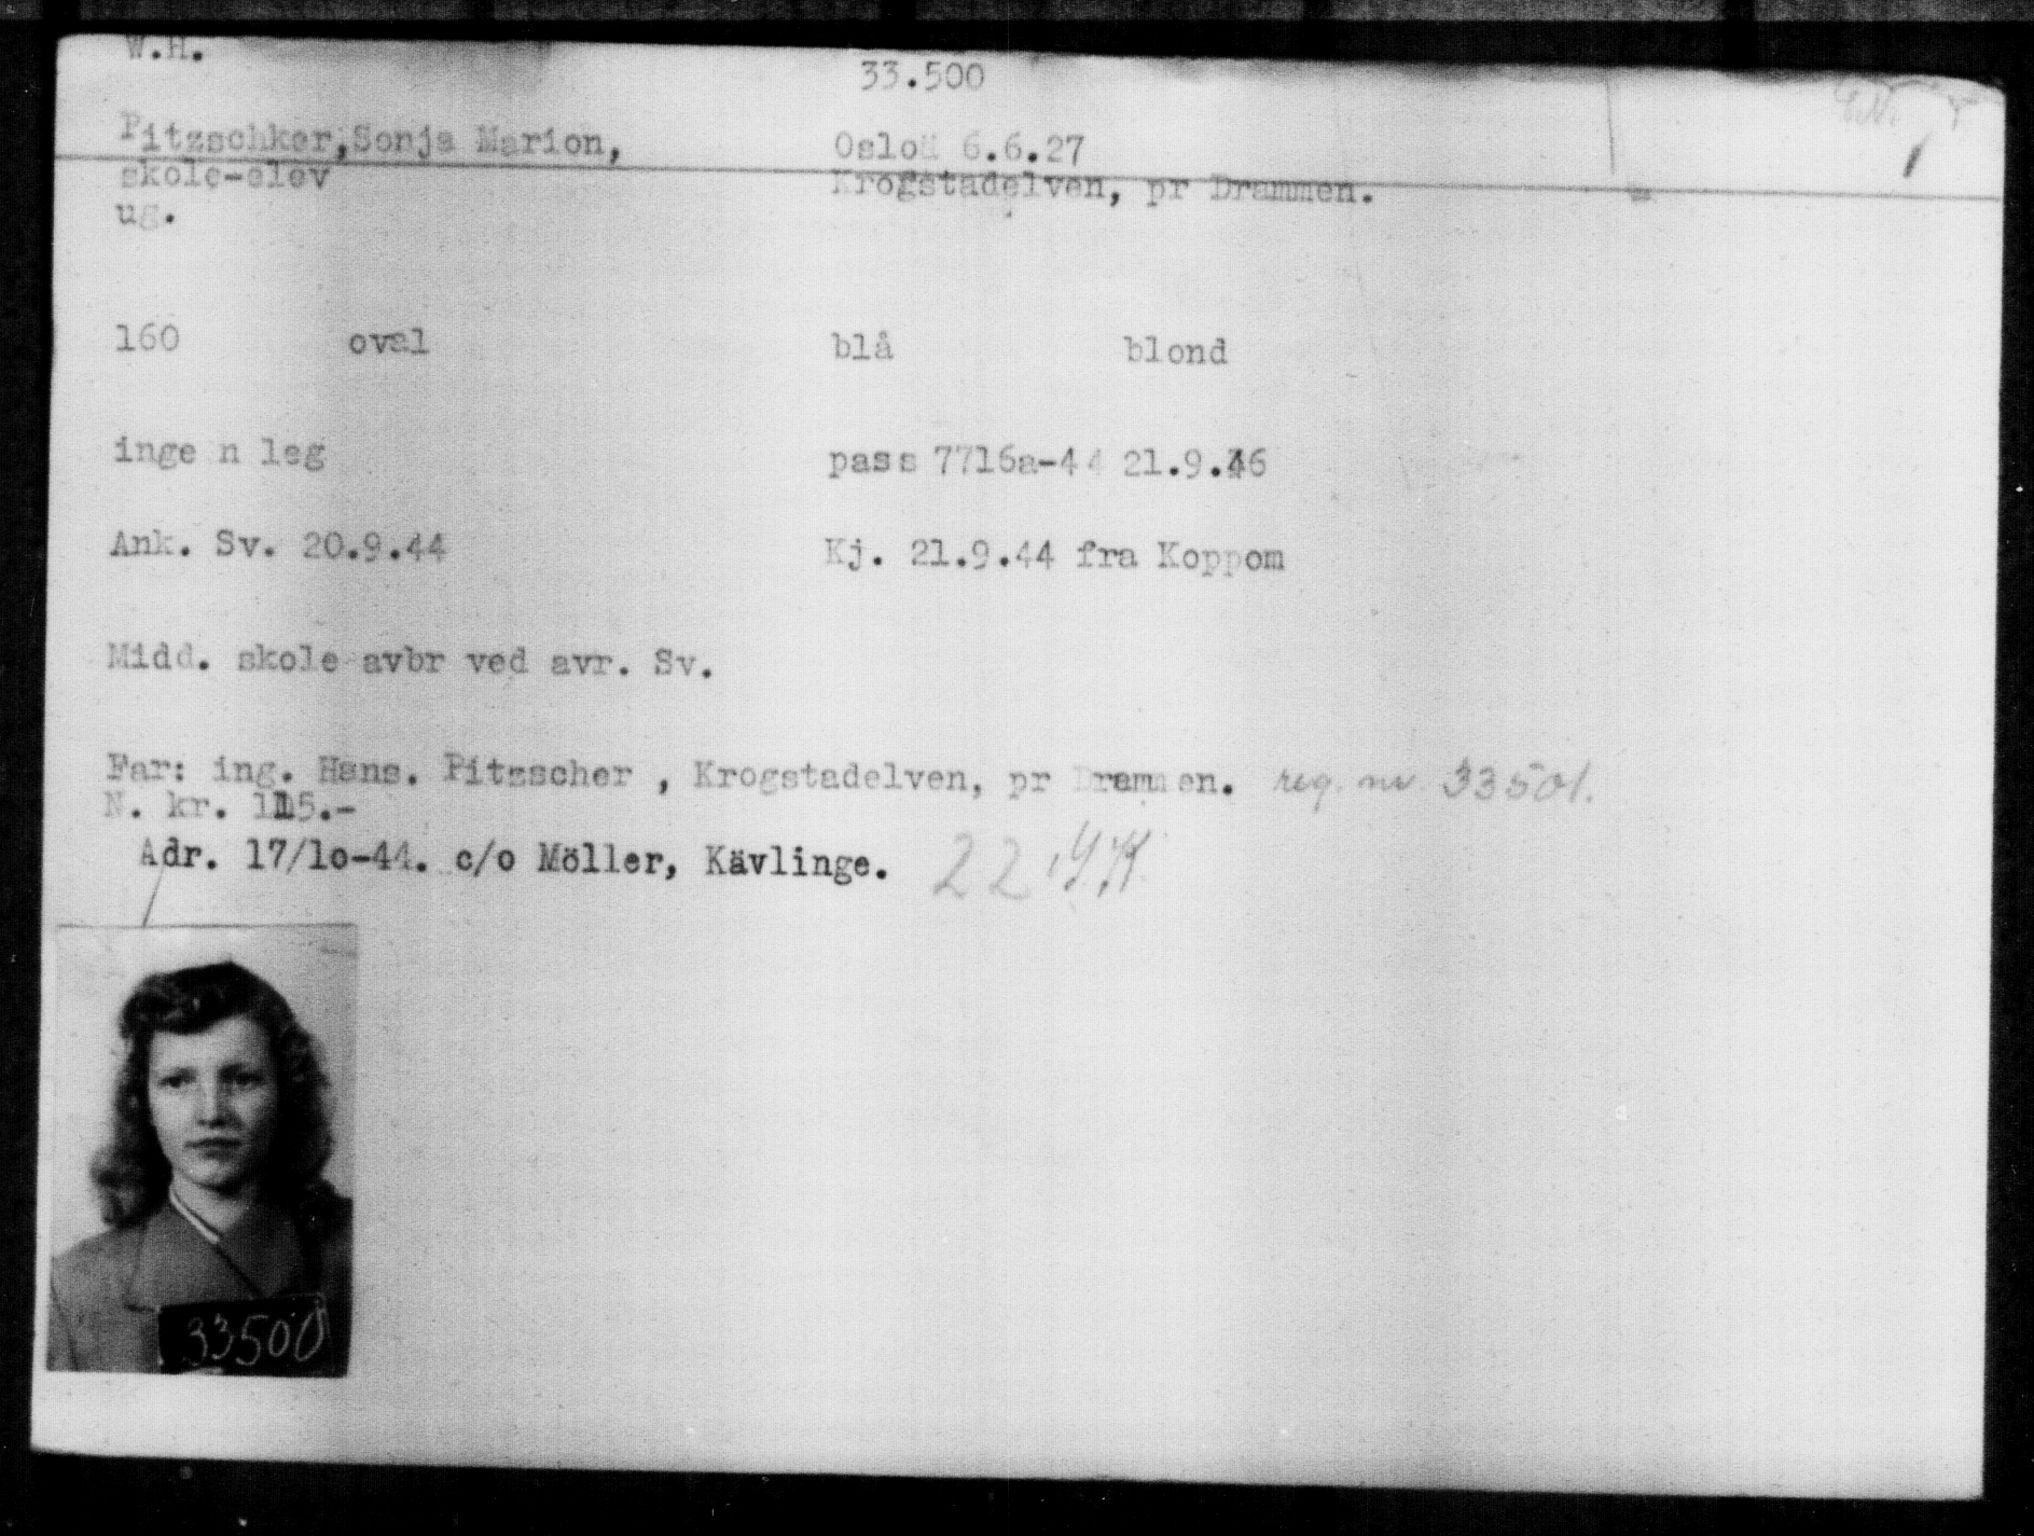 W.H.
33.500
Pitzschker,Sonja Marion, Oslo 6.6.27
skole-elev Krogstadelven, pr Drammen.
ug.
160 oval blå blond
inge n leg pass 7716a-44 21.9.46
Ank. Sv. 20.9.44 Kj. 21.9.44 fra Koppom
Midd. skole avbr ved avr. Sv.
Far: ing. Hans. Pitzscher , Krogstadelven, pr Drammen. reg. nr 33501.
N. kr. 115.-
Adr. 17/10-44. c/o Möller, Kävlinge.
33500